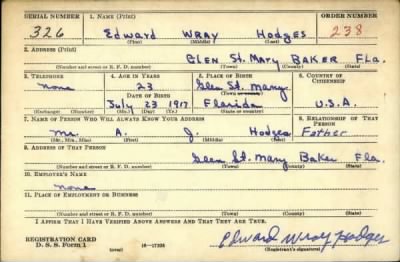 SERIAL NUMBER 1. NAME (Print) ORDER NUMBER
326 Edward WRAY Hodges 238
(First) (Middle) (Last)
2. ADDRESS (Print)
GLEN St. MARY BAKER FLA.
(Number and street or R. F. D. number) (Town) (County) (State)
3. TELEPHONE 4. AGE IN YEARS 5. PLACE OF BIRTH 6. COUNTRY OF CITIZENSHIP
None 23 Glen St. Mary
DATE OF BIRTH (Town or county)
July 23 1917 Florida U.S.A.
(Exchange) (Number) (Mo.) (Day) (Yr.) (State or country)
7. NAME OF PERSON WHO WILL ALWAYS KNOW YOUR ADDRESS 8. RELATIONSHIP OF THAT PERSON
Mr. A. J. Hodges Father
(Mr., Mrs., Miss) (First) (Middle) (Last)
9. ADDRESS OF THAT PERSON
Glen St. Mary Baker Fla.
(Number and street or R. F. D. number) (Town) (County) (State)
10. EMPLOYER'S NAME
None
11. PLACE OF EMPLOYMENT OR BUSINESS
(Number and street or R. F. D. number) (Town) (County) (State)
I AFFIRM THAT I HAVE VERIFIED ABOVE ANSWERS AND THAT THEY ARE TRUE.
REGISTRATION CARD
D. S. S. Form 1 (over) 16—17105 Edward Wray Hodges
(Registrant's signature)